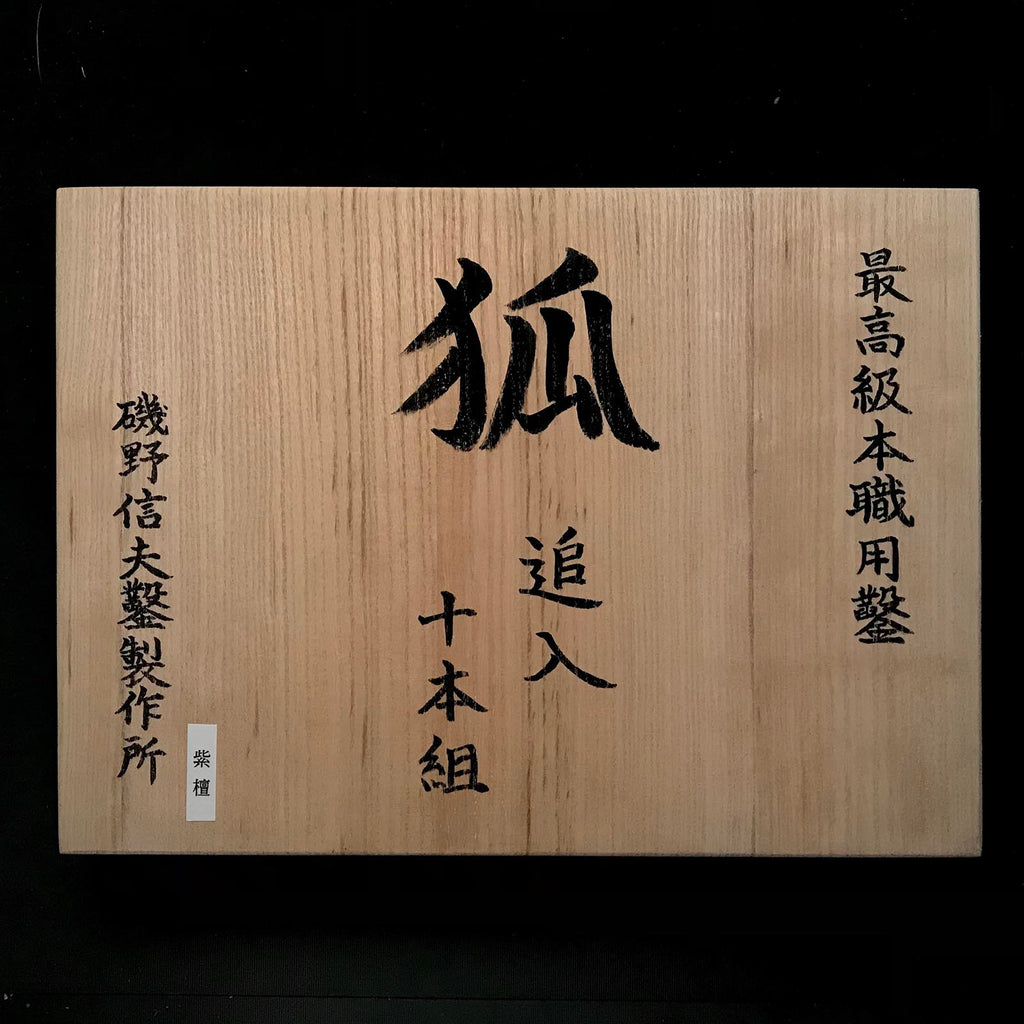 最高級本職用鑿
狐
追入
十本組
磯野信夫鑿製作所
紫檀